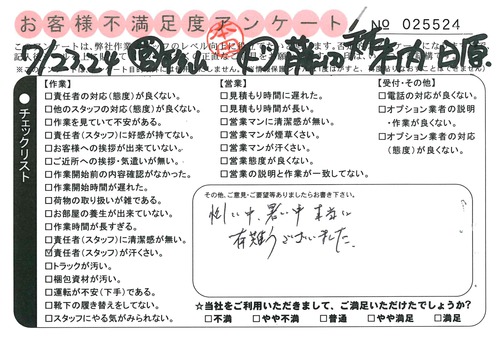 お客様不満足度アンケート
No 025524
7/23.24
【作業】
□責任者の対応(態度)が良くない。
□他のスタッフの対応(態度)が良くない。
□作業を見ていて不安がある。
□責任者(スタッフ)に好感が持てない。
□お客様への挨拶が出来ていない。
□ご近所への挨拶・気遣いが無い。
□作業開始前の内容確認がなかった。
□作業開始時間が遅れた。
□荷物の取り扱いが雑である。
□お部屋の養生が出来ていない。
□作業時間が長すぎる。
□責任者(スタッフ)に清潔感が無い。
☑責任者(スタッフ)が汗くさい。
□トラックが汚い。
□梱包資材が汚い。
□運転が不安(下手)である。
□靴下の履き替えをしてない。
□スタッフにやる気がみられない。
チェックリスト
【営業】
□見積もり時間に遅れた。
□見積もり時間が長い。
□営業マンに清潔感が無い。
□営業マンが煙草くさい。
□営業マンが汗くさい。
□営業態度が良くない。
□営業の説明と作業が一致してない。
【受付・その他】
□電話の対応が良くない。
□オプション業者の説明
・作業が良くない。
□オプション業者の対応
(態度)が良くない。
その他、ご意見・ご要望等ありましたらお書き下さい。
忙しい中、暑い中 本当に
有難うございました。
☆当社をご利用いただきまして、ご満足いただけたでしょうか?
□不満 □やや不満 □普通 □やや満足 □満足